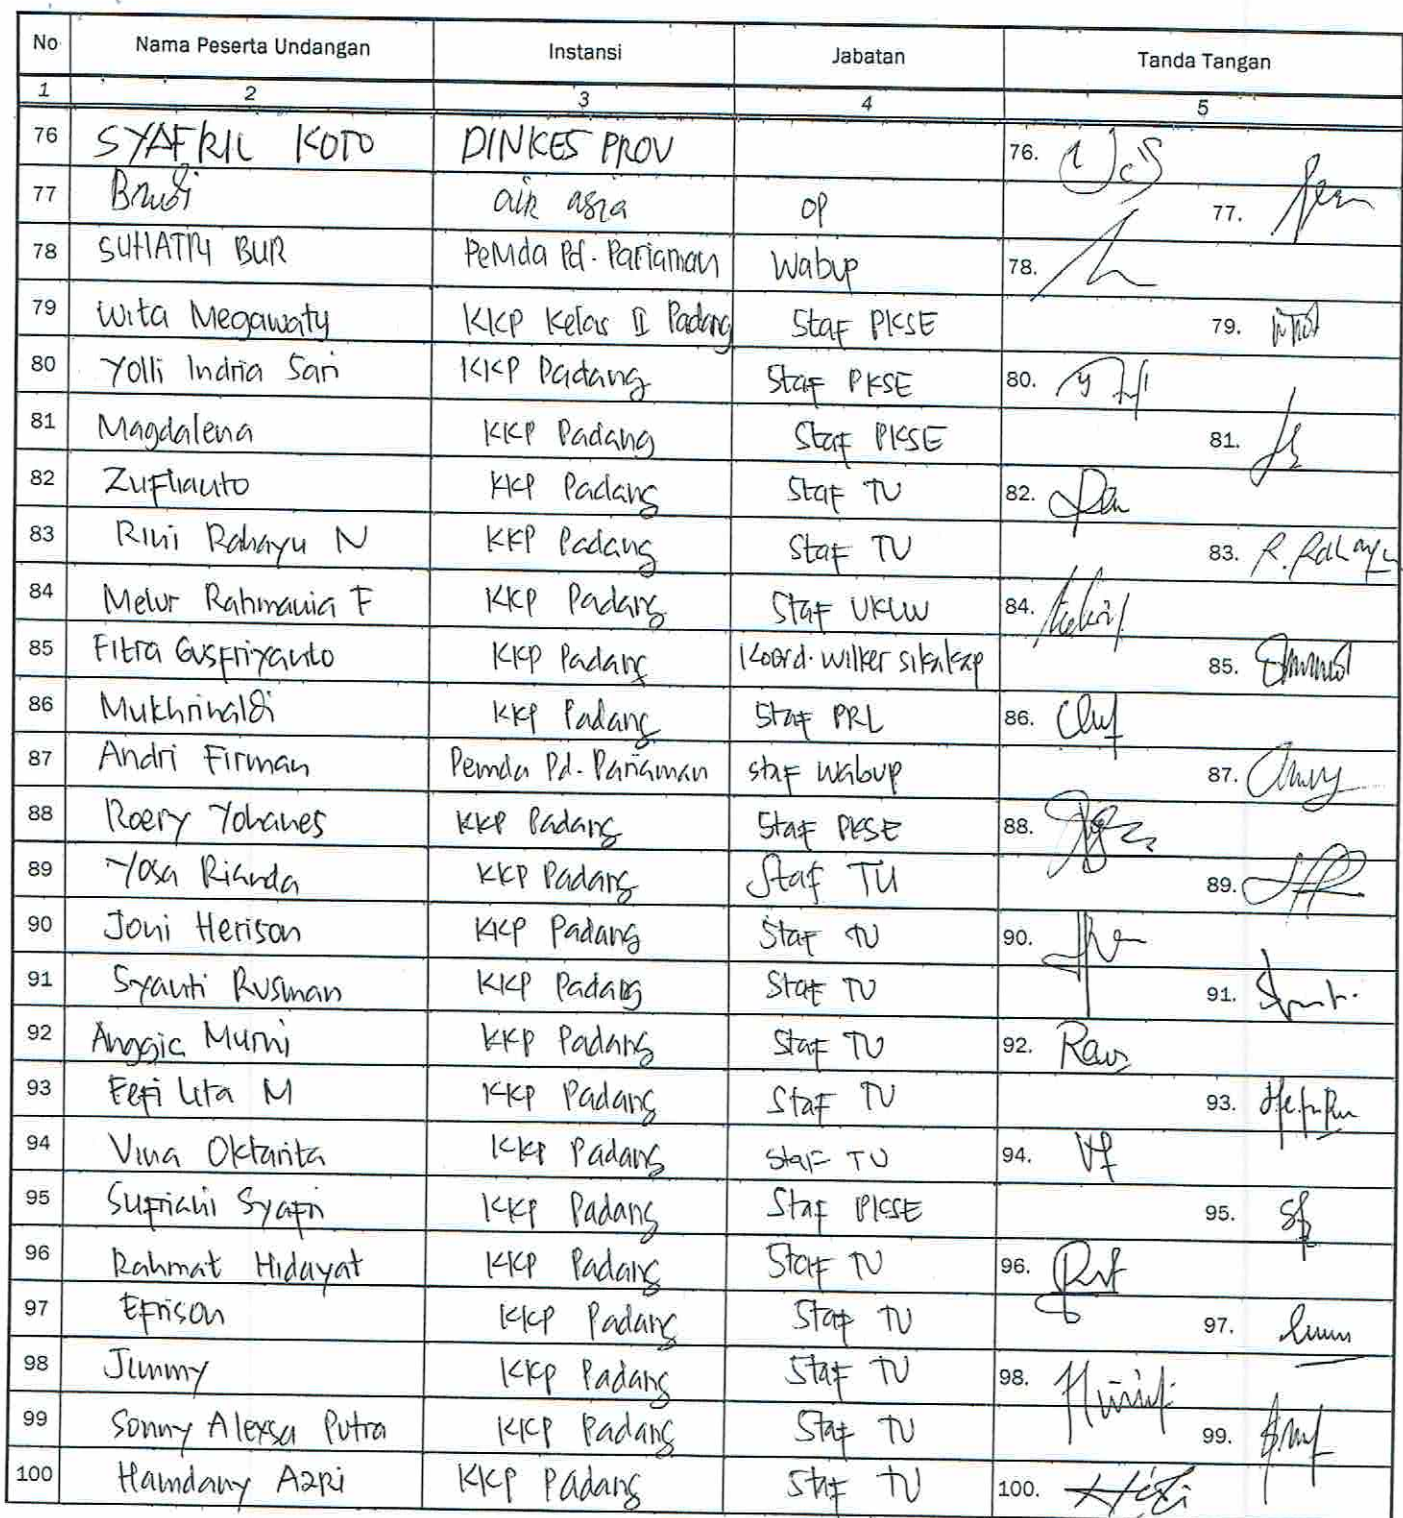 No Nama Peserta Undangan Instansi Jabatan Tanda Tangan
1 2 3 4 5
76 SYAFRIL KOTO DINKES PROV 76.
77 air asia OP 77.
78 SUHATRI BUR Pemda Pd. Pariaman Wabup 78.
79 Wita Megawaty KKP Kelas II Padang Staf PKSE 79.
80 Yolli Indria Sari KKP Padang Staf PKSE 80.
81 Magdalena KKP Padang Staf PKSE 81.
82 Zuflianto KKP Padang Staf TU 82.
83 Rini Rahayu N KKP Padang Staf TU 83. R. Rahayu
84 Melur Rahmania F KKP Padang Staf UKLW 84.
85 Fitra Gusfriyanto KKP Padang Koord. Wilker Sikakap 85.
86 Mukhrinaldi KKP Padang Staf PRL 86.
87 Andri Firman Pemda Pd. Pariaman staf Wabup 87.
88 Roery Yohanes KKP Padang Staf PKSE 88.
89 Yosa Rianda KKP Padang Staf TU 89.
90 Joni Herison KKP Padang Staf TU 90.
91 Syanti Rusman KKP Padang Staf TU 91.
92 Anggia Murni KKP Padang Staf TU 92.
93 Fefi Lita M KKP Padang Staf TU 93.
94 Vina Oktarita KKP Padang staf TU 94.
95 Sufriani Syafri KKP Padang Staf PKSE 95.
96 Rahmat Hidayat KKP Padang Staf TU 96.
97 Efrison KKP Padang Staf TU 97.
98 Jimmy KKP Padang Staf TU 98.
99 Sonny Alexsa Putra KKP Padang Staf TU 99.
100 Hamdany Azri KKP Padang Staf TU 100.